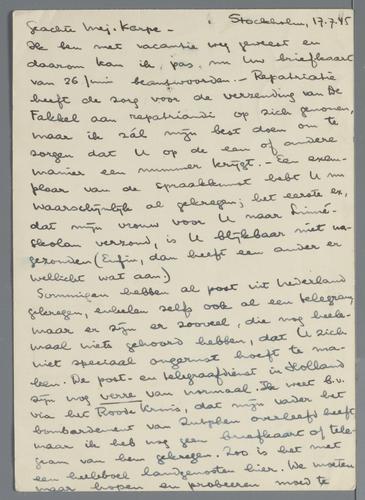 Stockholm, 17.7.45
Geachte Mej. Karpe -
Ik ben met vacantie weg geweest en
daarom kan ik pas nu Uw briefkaart
van 26 juni beantwoorden. - Repatriatie
heeft de zorg voor de verzending van De
Fakkel aan repatriandi op zich genomen,
maar ik zál mijn best doen om te
zorgen dat U op de een of andere
manier een nummer krijgt. - Een exem-
plaar van de Spraakkunst hebt U nu
waarschijnlijk al gekregen; het eerste ex,
dat mijn vrouw voor U naar
skolan verzond, is U blijkbaar niet na-
gezonden (Enfin, dan heeft een ander er
wellicht wat aan.)
Sommigen hebben al post uit Nederland
gekregen, enkelen zelfs ook al een telegram
maar er zijn er zooveel, die nog hele-
maal niets gehoord hebben, dat U zich
niet speciaal ongerust hoeft te ma-
ken. De post- en telegraafdienst in Holland
zijn nog verre van normaal. Ik weet b.v.
via het Roode Kruis, dat mijn vader het
bombardement van Zutphen overleefd heeft
maar ik heb nog geen briefkaart of tele-
gram van hem gekregen. Zoo is het met
een heeleboel landgenoten hier. We moeten
maar hopen en probeeren moed te